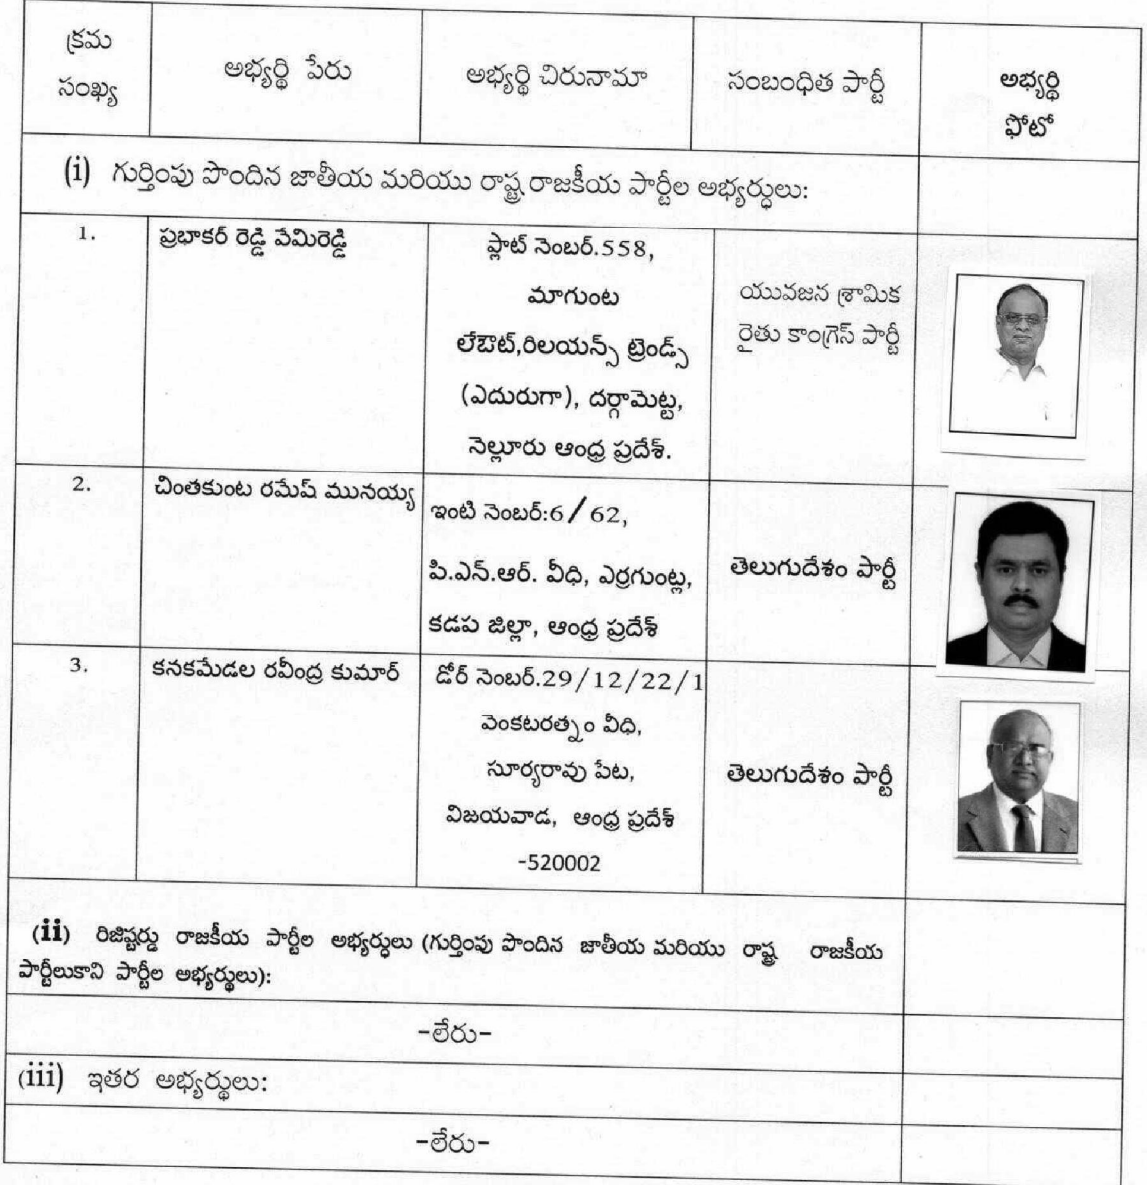 క్రమ సంఖ్య
అభ్యర్థి పేరు
అభ్యర్థి చిరునామా
సంబంధిత పార్టీ
అభ్యర్థి ఫోటో
(i) గుర్తింపు పొందిన జాతీయ మరియు రాష్ట్ర రాజకీయ పార్టీల అభ్యర్ధులు:
1.
ప్రభాకర్ రెడ్డి వేమిరెడ్డి
ఫ్లాట్ నెంబర్.558,
మాగుంట
లేఔట్,రిలయన్స్ ట్రెండ్స్
(ఎదురుగా), దర్గామెట్ట,
నెల్లూరు ఆంధ్ర ప్రదేశ్.
యువజన శ్రామిక
రైతు కాంగ్రెస్ పార్టీ
2.
చింతకుంట రమేష్ మునయ్య
ఇంటి నెంబర్:6/62,
పి.ఎన్.ఆర్. వీధి, ఎర్రగుంట్ల,
కడప జిల్లా, ఆంధ్ర ప్రదేశ్
తెలుగుదేశం పార్టీ
3.
కనకమేడల రవీంద్ర కుమార్
డోర్ నెంబర్.29/12/22/1
వెంకటరత్నం వీధి,
సూర్యరావు పేట,
విజయవాడ, ఆంధ్ర ప్రదేశ్
-520002
తెలుగుదేశం పార్టీ
(ii) రిజిష్టర్డు రాజకీయ పార్టీల అభ్యర్ధులు (గుర్తింపు పొందిన జాతీయ మరియు రాష్ట్ర రాజకీయ
పార్టీలుకాని పార్టీల అభ్యర్థులు):
-లేరు-
(iii) ఇతర అభ్యర్థులు:
-లేరు-